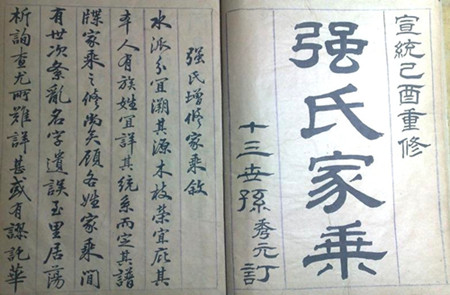 宣統己酉重修
强氏家乘
十三世孫秀元訂
强氏增修家乘敘
水派分宜溯其源木枝榮宜庇其
本人有族姓宜詳其統系而定其譜
牒家乘之修尚矣顧各姓家乘間
有世次紊亂名字遺誤至里居蕩
析詢查尤所難詳甚或有謬託華